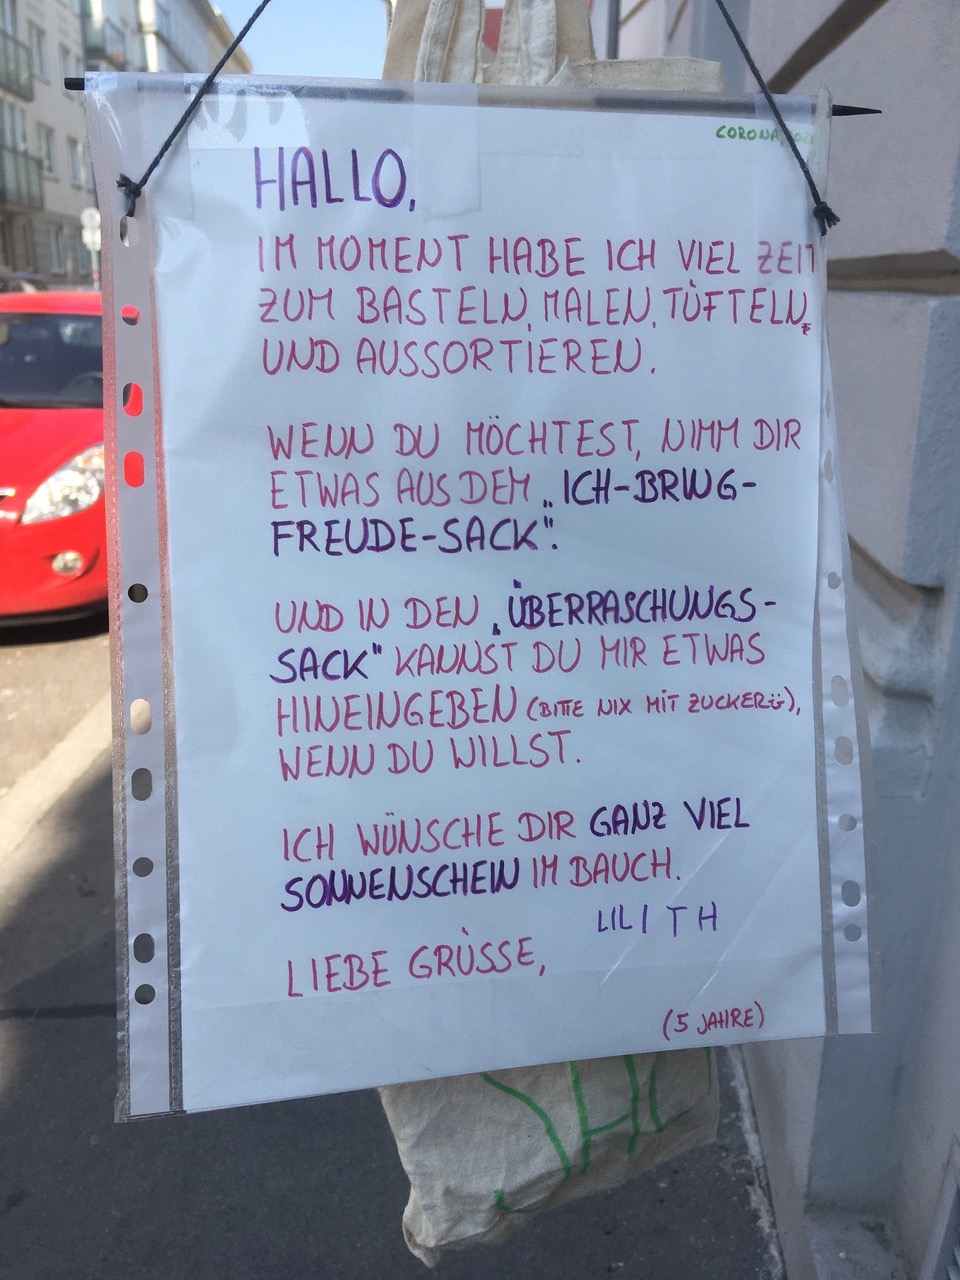 CORONA
HALLO,
IM MOMENT HABE ICH VIEL ZEIT
ZUM BASTELN, MALEN, TÜFTELN,
UND AUSSORTIEREN.
WENN DU MÖCHTEST, NIMM DIR
ETWAS AUS DEM „ICH-BRING-
FREUDE-SACK".
UND IN DEN „ÜBERRASCHUNGS-
SACK" KANNST DU MIR ETWAS
HINEINGEBEN (BITTE NIX MIT ZUCKER ü),
WENN DU WILLST.
ICH WÜNSCHE DIR GANZ VIEL
SONNENSCHEIN IM BAUCH.
LILITH
LIEBE GRÜSSE,
(5 JAHRE)